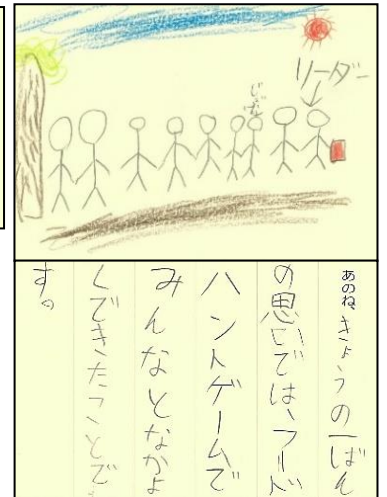 リーダー
じぶん
あのね、きょうの一ばん
の思いでは、フード
ハントゲームで
みんなとなかよ
くできたことで
す。